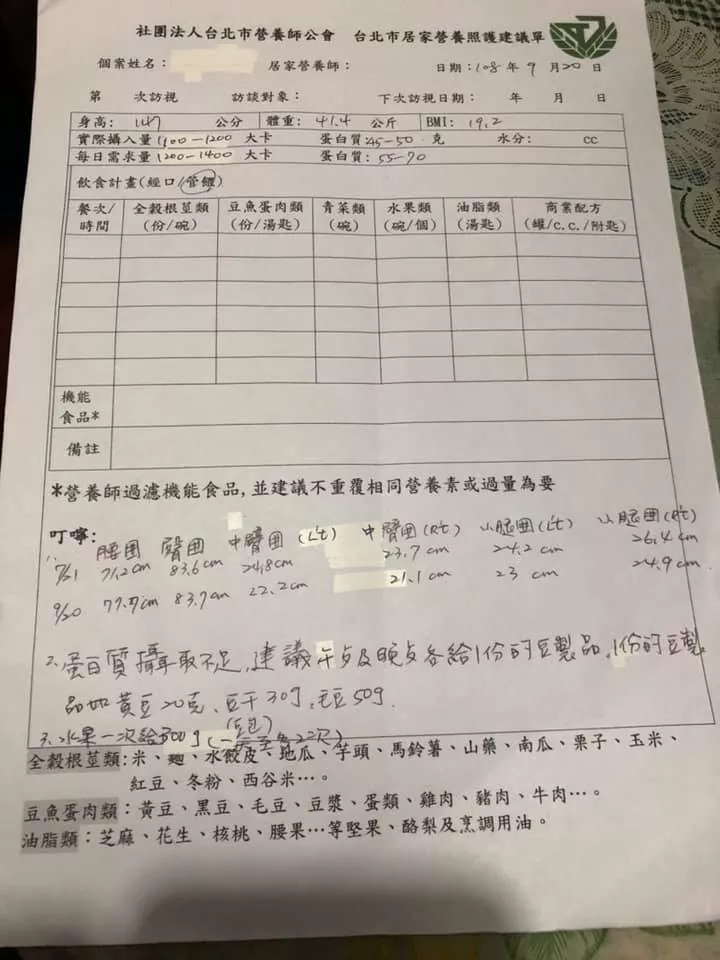 社團法人台北市營養師公會 台北市居家營養照護建議單
個案姓名： 居家營養師： 日期：108 年 9 月 20 日
第 次訪視 訪談對象： 下次訪視日期： 年 月 日
身高： 147 公分 體重： 41.4 公斤 BMI： 19.2
實際攝入量 1100－1200 大卡 蛋白質：45-50 克 水分： cc
每日需求量 1200－1400 大卡 蛋白質：55-70
飲食計畫(經口/管餵)
餐次/時間 全穀根莖類(份/碗) 豆魚蛋肉類(份/湯匙) 青菜類(碗) 水果類(碗/個) 油脂類(湯匙) 商業配方(罐/c.c./附匙)
機能食品*
備註
*營養師過濾機能食品，並建議不重覆相同營養素或過量為要
叮嚀：
腰圍 臀圍 中臂圍(L't) 中臂圍(R't) 小腿圍(L't) 小腿圍(R't)
7/31 71.2cm 83.6cm 24.8cm 23.7cm 24.2cm 26.4cm
9/20 77.7cm 83.7cm 22.2cm 21.1cm 23 cm 24.9cm
2. 蛋白質攝取不足，建議午點及晚點各給1份的豆製品，1份的豆製
品如黃豆20克、豆干30g、毛豆50g.
3. 水果一次給300g
全穀根莖類：米、麵、水餃皮、地瓜、芋頭、馬鈴薯、山藥、南瓜、栗子、玉米、
紅豆、冬粉、西谷米…。
豆魚蛋肉類：黃豆、黑豆、毛豆、豆漿、蛋類、雞肉、豬肉、牛肉…。
油脂類：芝麻、花生、核桃、腰果…等堅果、酪梨及烹調用油。